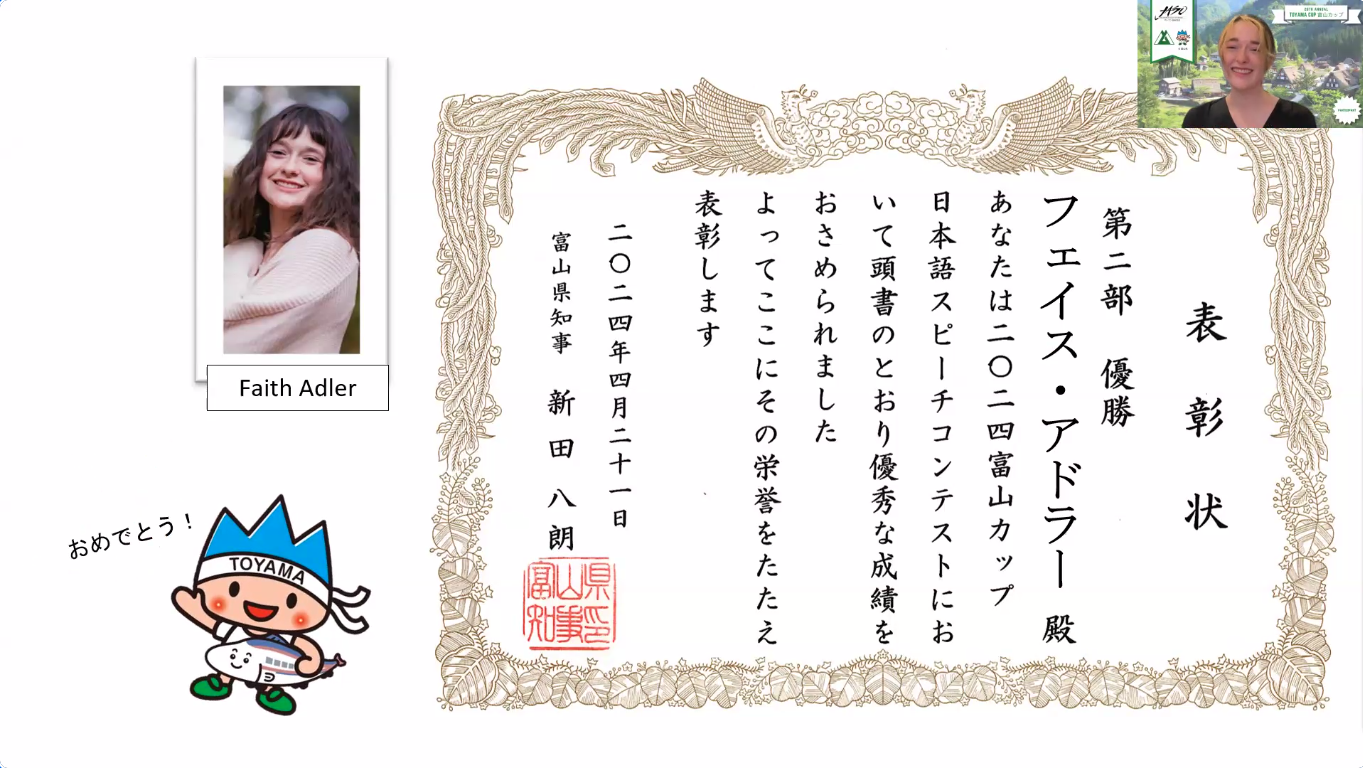 表彰状
第二部　優勝
フェイス・アドラー　殿
あなたは二〇二四富山カップ
日本語スピーチコンテストにお
いて頭書のとおり優秀な成績を
おさめられました
よってここにその栄誉をたたえ
表彰します
二〇二四年四月二十一日
富山県知事　新田八朗
富山県知事印
Faith Adler
おめでとう！
TOYAMA
TOYAMA CUP 富山カップ